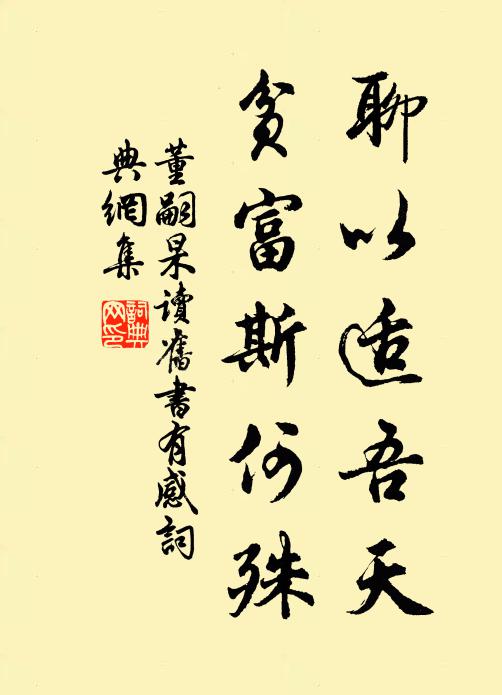 聊以适吾天
貧富斯何殊
董嗣杲讀舊書有感詞
典網集
詞典網印